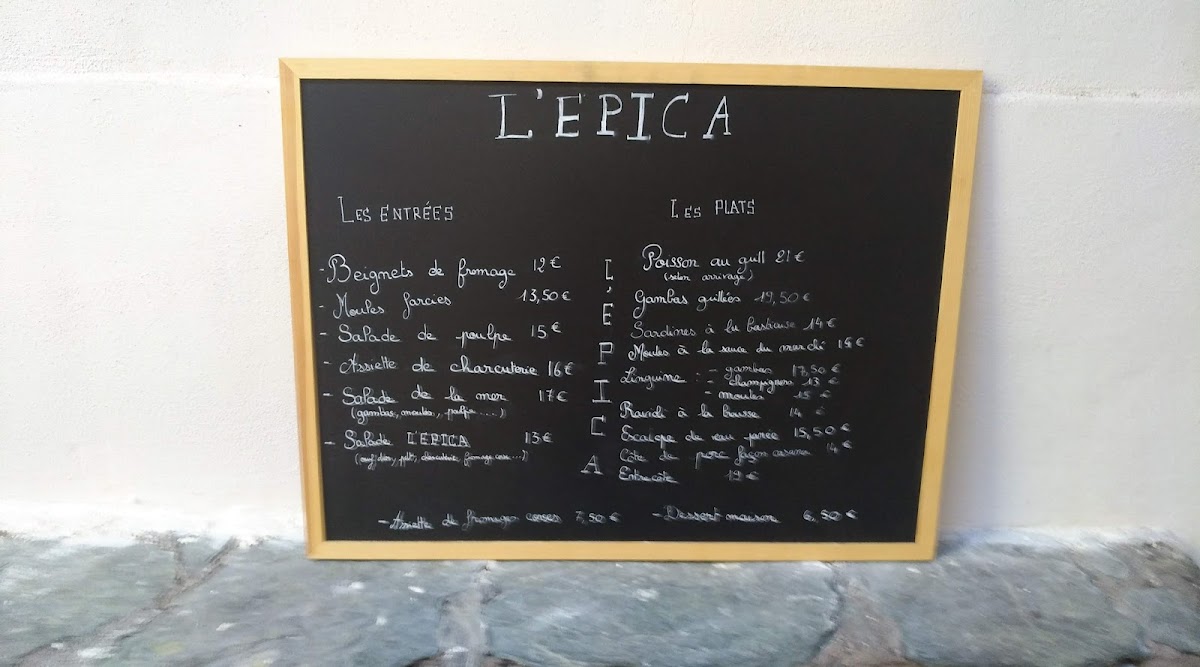 L'EPICA
LES ENTRÉES
- Beignets de fromage 12 €
- Moules farcies 13,50 €
- Salade de poulpe 15 €
- Assiette de charcuterie 16 €
- Salade de la mer 17 €
(gambas, moules, poulpe .....)
- Salade L'EPICA 13 €
charcuterie, fromage corse ...)
L'EPICA
LES PLATS
Poisson au grill 21 €
(selon arrivage)
Gambas grillées 19,50 €
Sardines à la bastiaise 14 €
Moules à la sauce du marché
Linguine : - gambas 17,50 €
- champignons 13 €
- moules 15 €
Ravioli à la 14 €
Escalope de veau panée 15,50 €
Côte de porc façon 14 €
Entrecôte 19 €
- Assiette de fromages corses 7,50 €
- Dessert maison 6,50 €